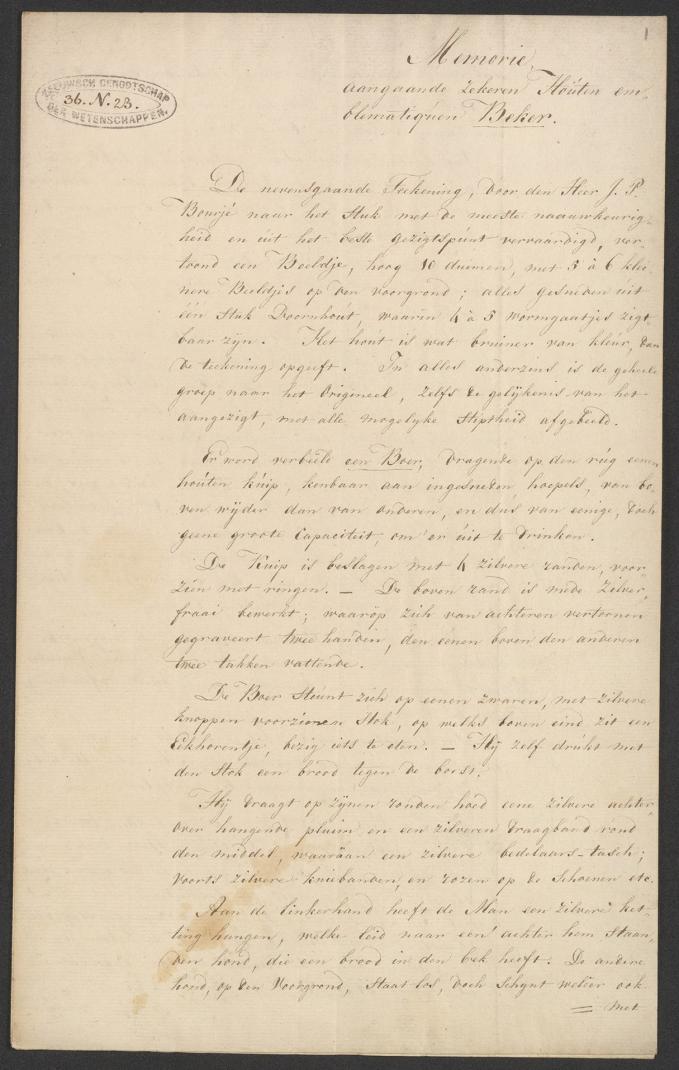 1
ZEEUWSCH GENOOTSCHAP
36. N. 23.
DER WETENSCHAPPEN.
Memorie,
aangaande zekeren Houten em-
blematiquen Beker.
De nevensgaande Teekening, door den Heer J. P.
Bourjé naar het stuk met de meeste naauwkeurig-
heid en uit het beste gezigtspunt vervaardigd, ver-
toond een Beeldje, hoog 10 duimen, met 5 à 6 klei-
nere Beeldjes op den voorgrond; alles gesneden uit
één stuk Doornhout, waarin 4 à 5 wormgaatjes zigt-
baar zijn. Het hout is wat bruiner van kleur, dan
de teekening opgeeft. In alles anderzins is de geheele
groep naar het Origineel, zelfs de gelykenis van het
aangezigt, met alle mogelyke stiptheid afgebeeld.
Er word verbeeld een Boer, dragende op den rug eenen
houten kuip, kenbaar aan ingesneden hoepels, van bo-
ven wijder dan van onderen, en dus van eenige, doch
geene groote Capaciteit, om er uit te drinken.
De Kuip is beslagen met 4 zilvere randen, voor-
zien met ringen. — De boven rand is mede zilver,
fraai bewerkt; waarop zich van achteren vertoonen
gegraveert twee handen, den eenen boven den anderen
twee takken vattende.
De Boer steunt zich op eenen zwaren, met zilvere
knoppen voorzienen stok, op welks boven eind zit een
Eekhorentje, bezig iets te eten. — Hy zelf drukt met
den stok een brood tegen de borst.
Hy draagt op zynen ronden hoed eene zilvere achter-
over hangende pluim en een zilveren draagband rond
den middel, waaräan een zilvere bedelaars-tasch;
voorts zilvere kniebanden, en rozen op de schoenen etc.
Aan de linkerhand heeft de Man een zilvere ket-
ting hangen, welke leid naar een' achter hem staan-
den hond, die een brood in den bek heeft. De andere
hond, op den Voorgrond, staat los, doch schynt weleer ook
= met